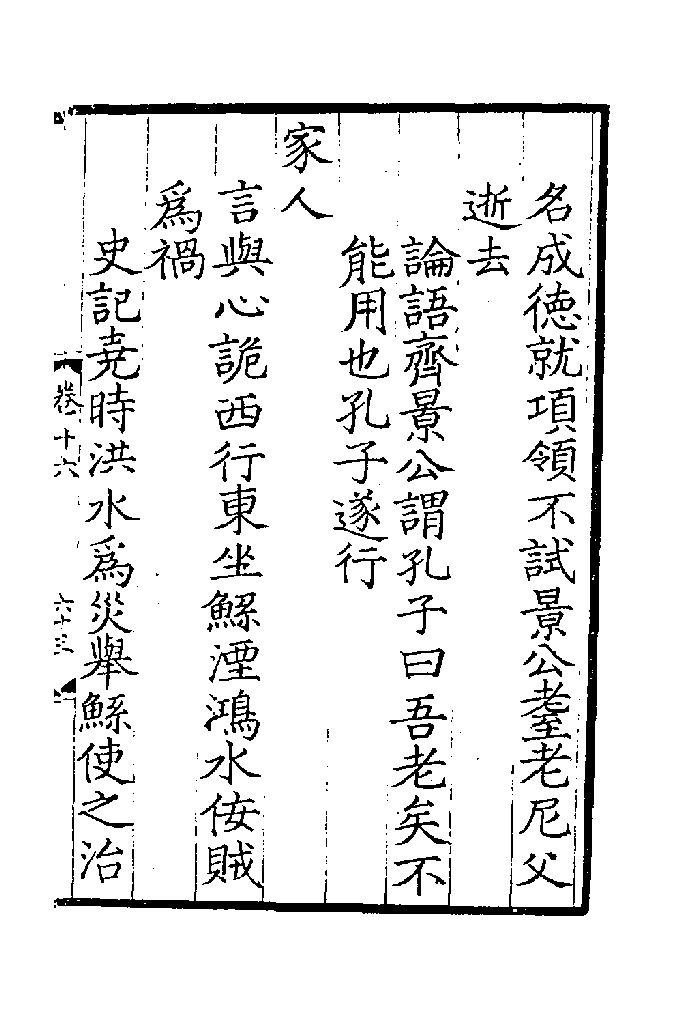 名成徳就項領不試景公耋老尼父
逝去
論語齊景公謂孔子曰吾老矣不
能用也孔子遂行
家人
言與心詭西行東坐鯀湮鴻水佞賊
爲禍
史記堯時洪水爲災舉鯀使之治
卷十六
六十三